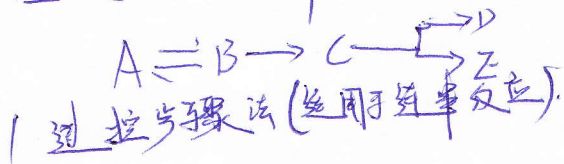 A ⇌ B → C → D
→ E
1 速控步骤法(适用于链式反应).